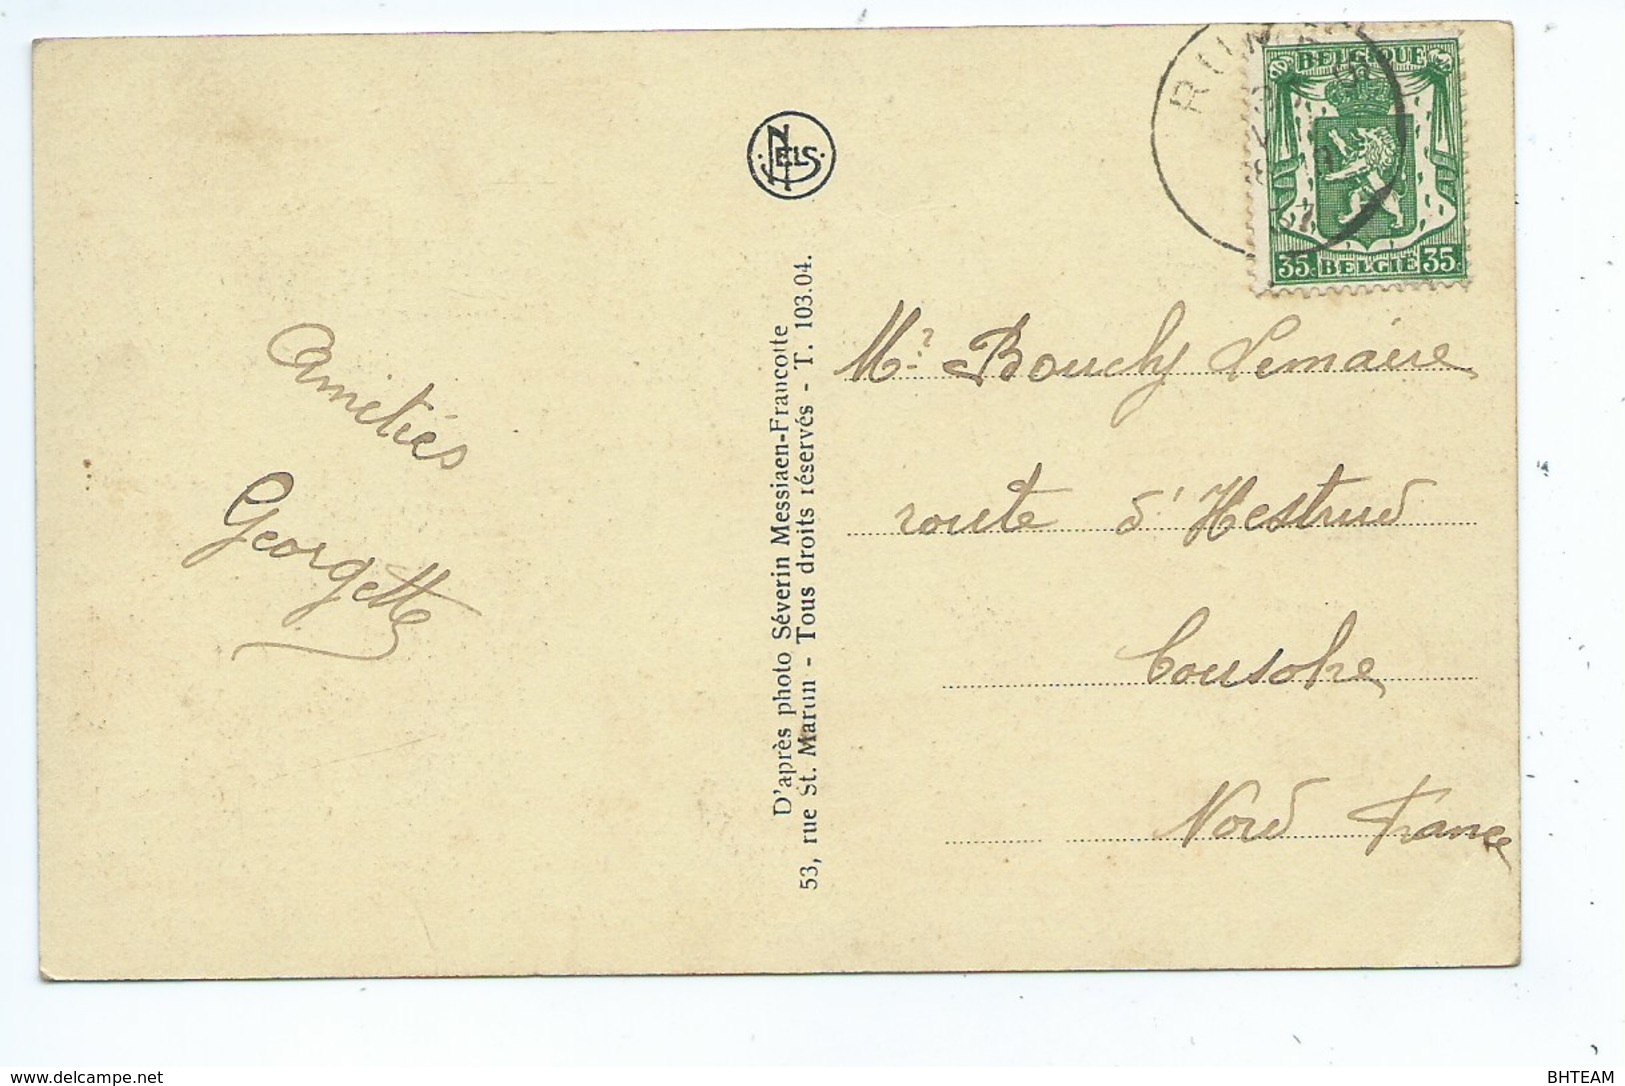 Amitiés
Georgette
NELS
D'après photo Séverin Messiaen-Francotte
53, rue St. Martin - Tous droits réservés - T. 103.04.
BELGIQUE
35 BELGIE 35
Mr. Bouchy Lemaire
route d'Hestrud
Cousolre
Nord France
BHTEAM
delcampe.net